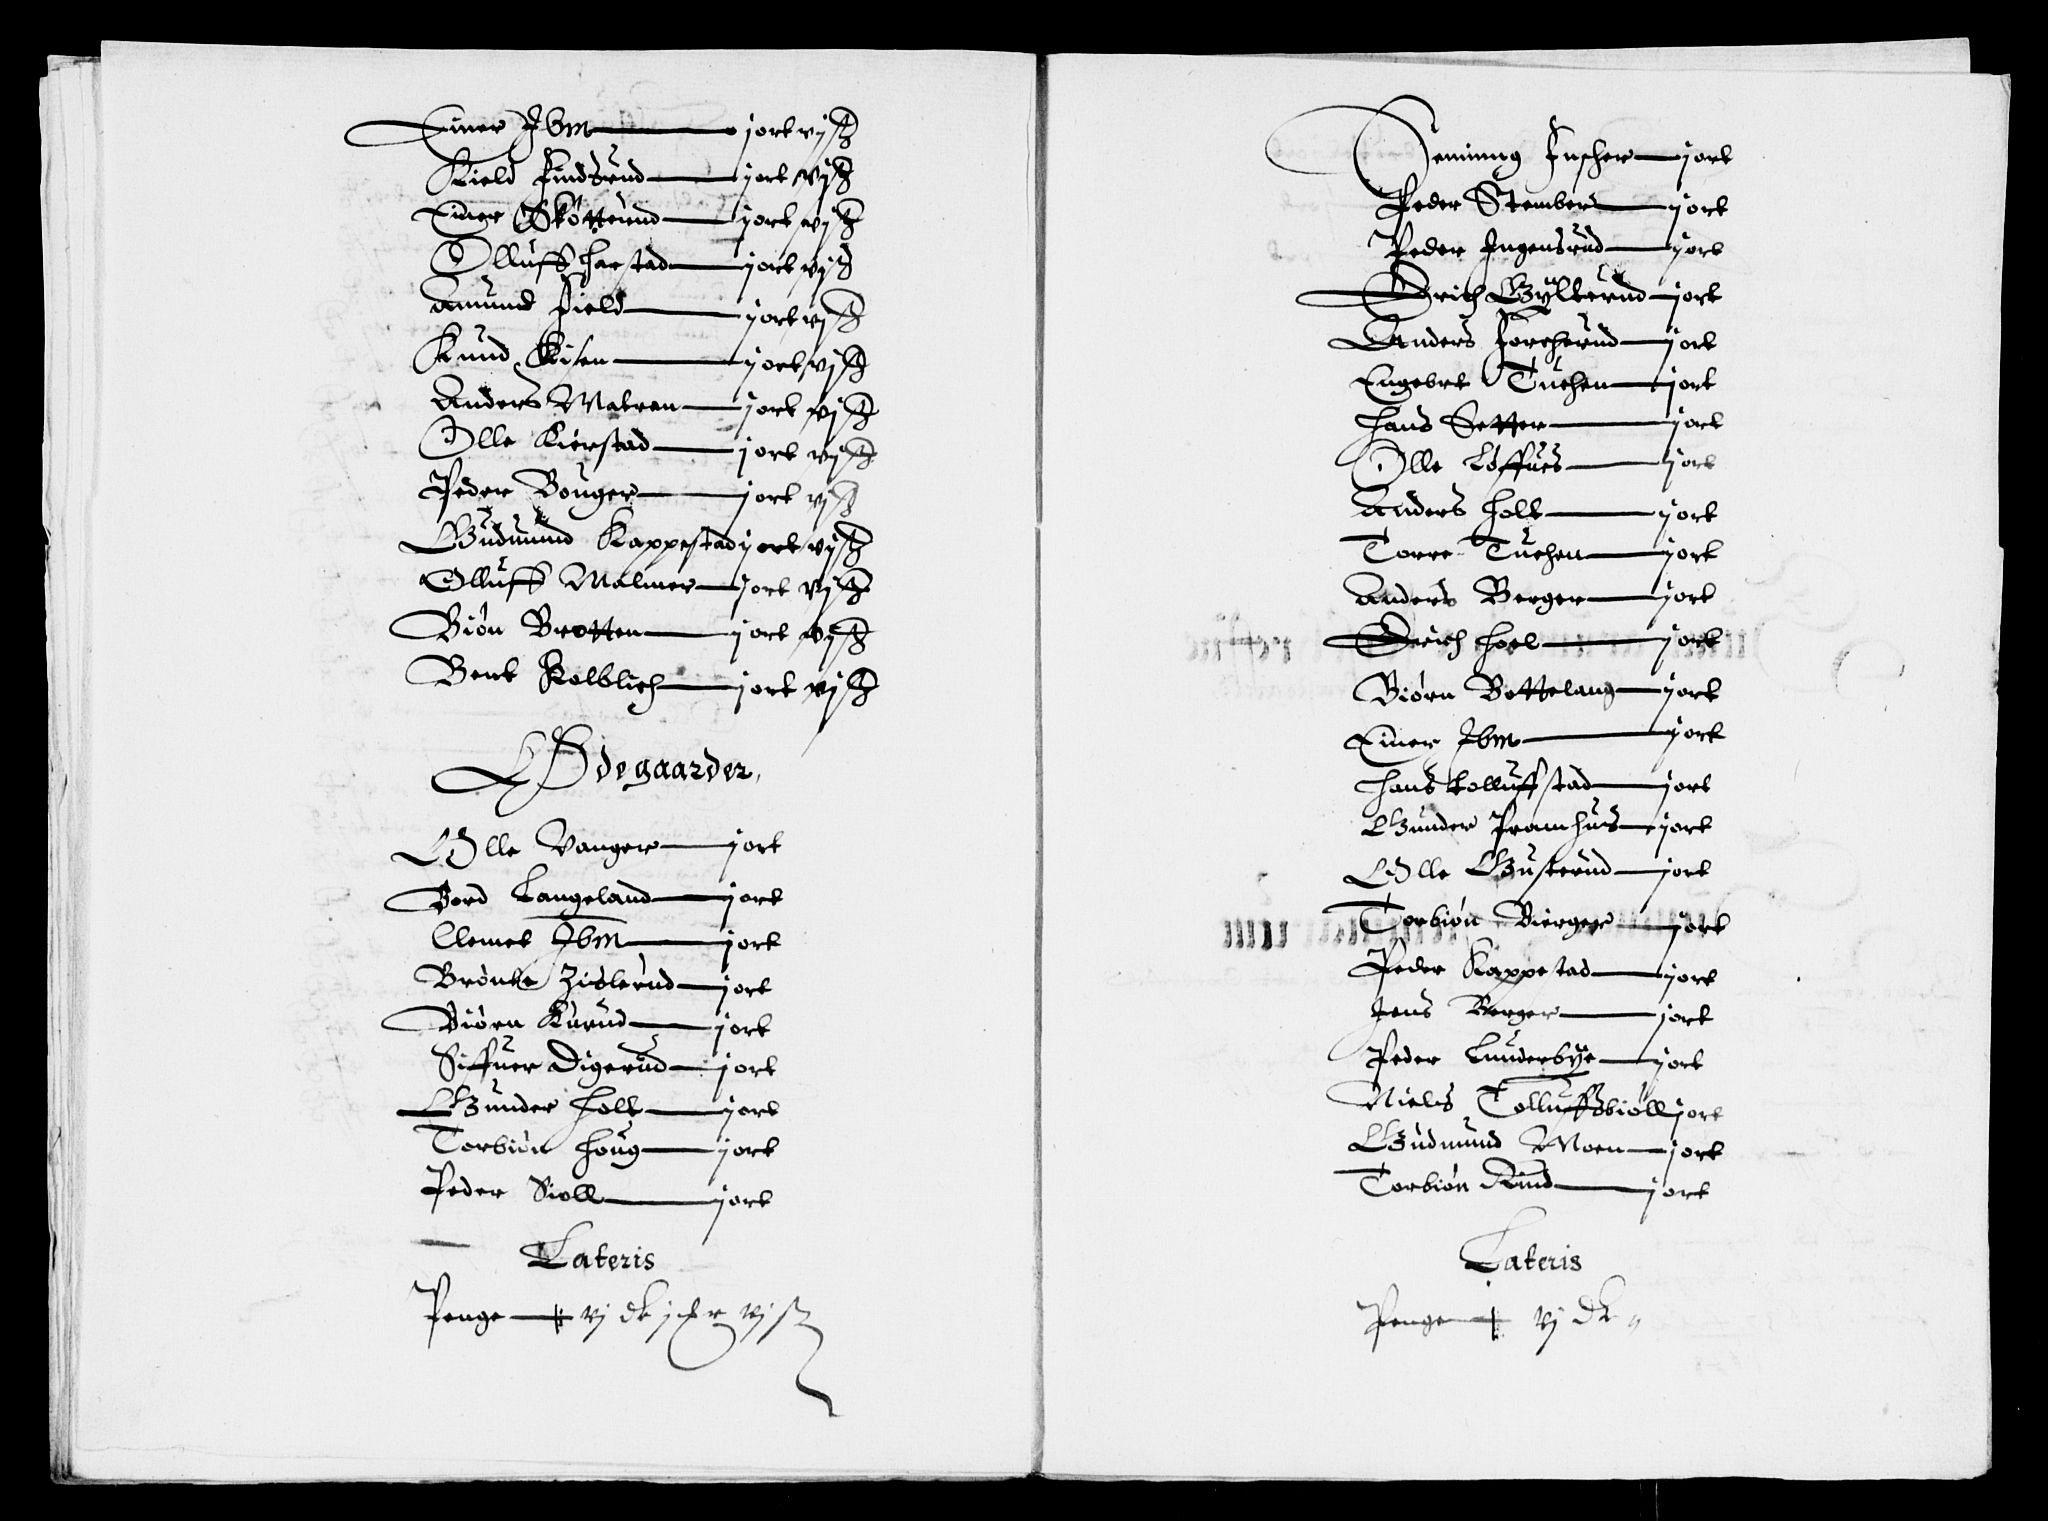 Einer Ibm — j ort vj ß
Kield Findsrud — j ort vj ß
Einer Skötterud — j ort vj ß
Olluff Harstad — j ort vj ß
Amund Field — j ort vj ß
Knud — j ort vj ß
Anders Matran — j ort vj ß
Olle Kierstad — j ort vj ß
Peder Bouger — j ort vj ß
Gudmund Kappestad j ort vj ß
Olluff Malmer — j ort vj ß
Biön Brotten — j ort vj ß
Bent Kolblich — j ort vj ß
Ödegaarder,
Olle Vanger — j ort
Bord Langeland — j ort
Clemet Ibm — j ort
Brönte Zislerud — j ort
Biörn Kurud — j ort
Siffuer Digerud — j ort
Gunder Holt — j ort
Torbiön Houg — j ort
Peder Sioll — j ort
Lateris
Penge — vj dlr j ort vj ß
Heming Fischer — j ort
Peder Stember — j ort
Peder Ingensrud — j ort
Erich Gylterud — j ort
Anders Forcherud — j ort
Engebret Tuchen — j ort
Hans Setter — j ort
Olle Löffnes — j ort
Anders Holt — j ort
Torre Tuchen — j ort
Anders Berger — j ort
Erich Hoel — j ort
Biörn Bottelang — j ort
Einer Ibm — j ort
Hans tolluffstad — j ort
Gunder Pramhus — j ort
Olle Gusterud — j ort
Torbiön Bierger — j ort
Peder Kappestad — j ort
Jens Berger — j ort
Peder Lunderbÿe — j ort
Niels Tolluffsbiöll j ort
Gudmund Moen — j ort
Torbiön Rud — j ort
Lateris
Penge — vj dlr